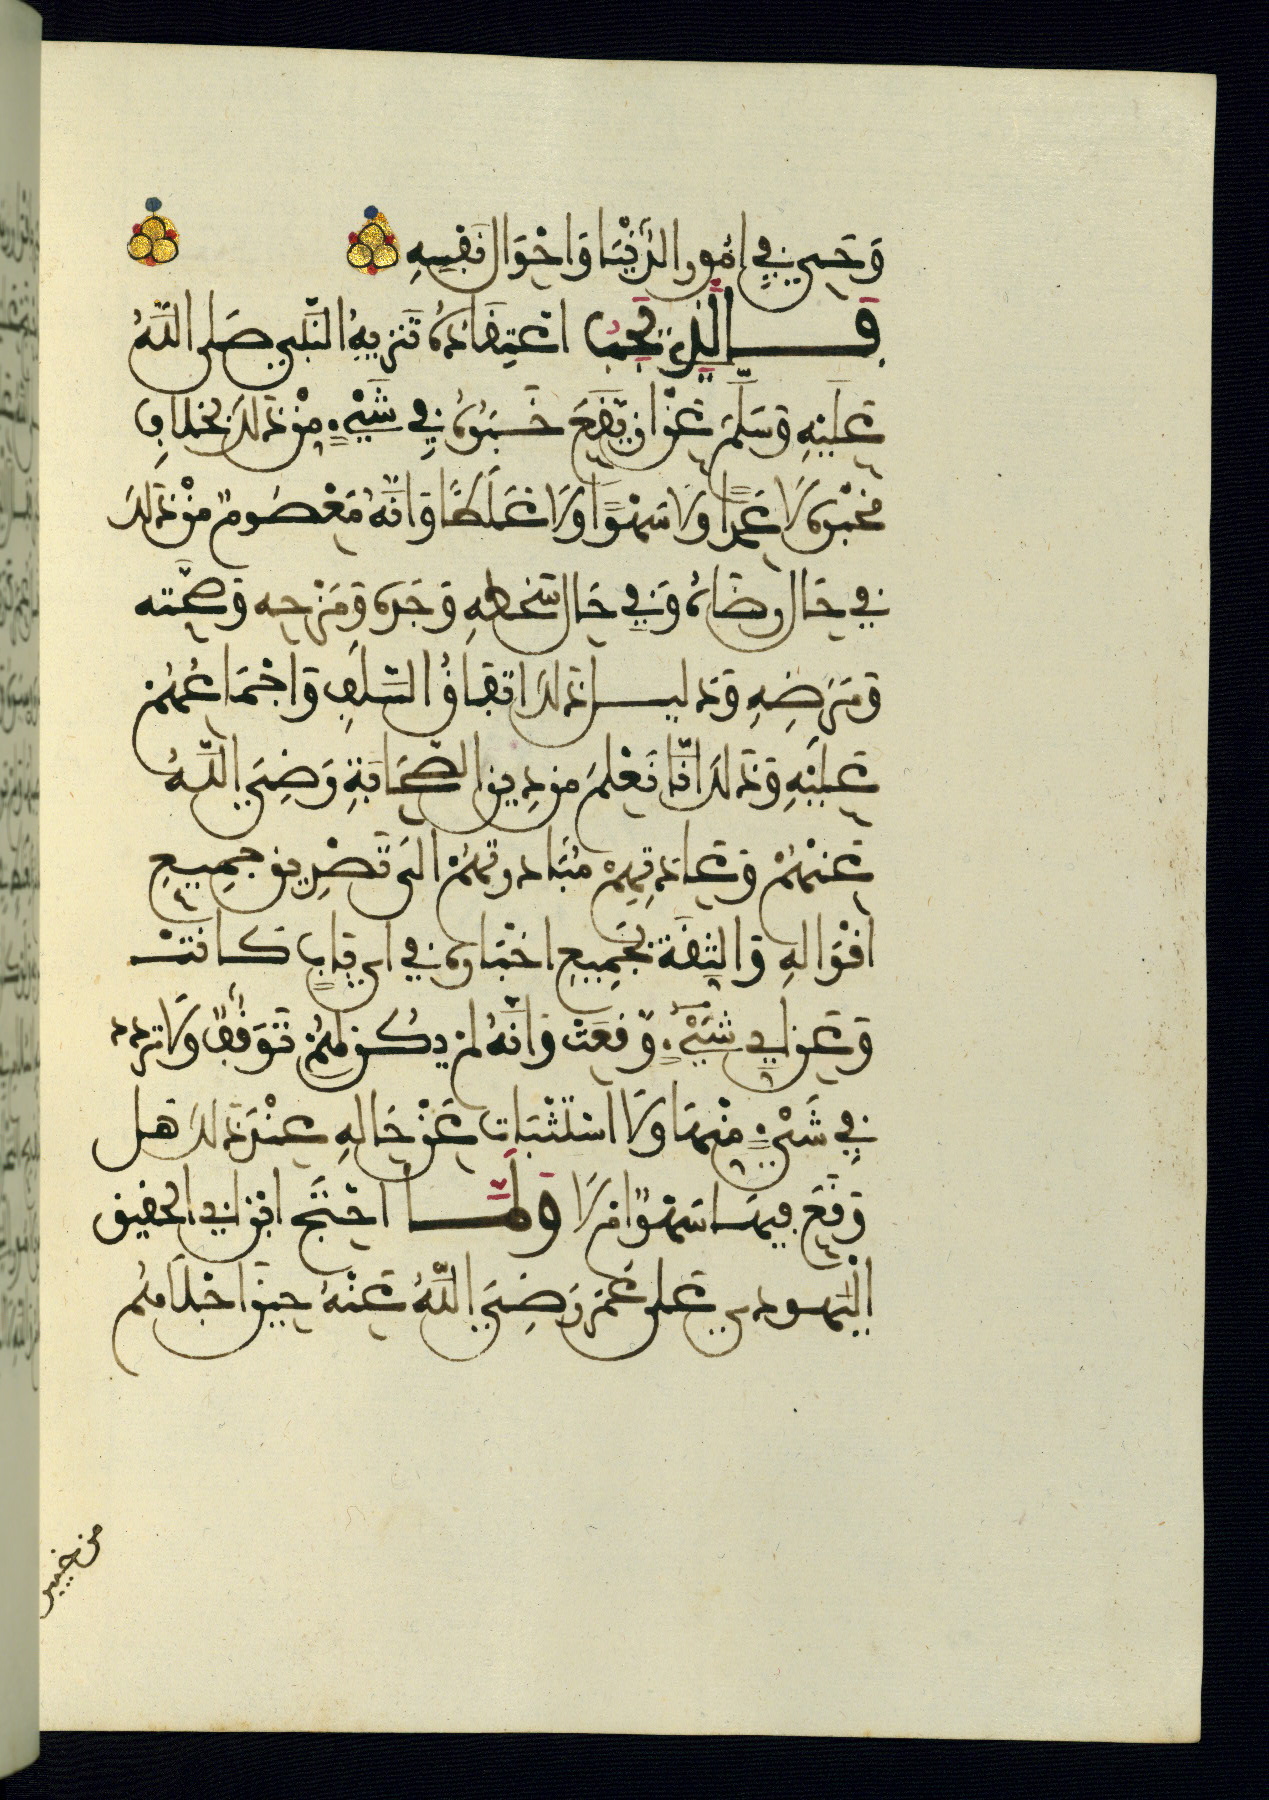 وَحَىٍ فِي امُورِ الدُّنْيَا وَاحْوَالِ نَفْسِهِ
فَالَّذِي يَجِبُ اعْتِقَادُهُ تَنْزِيهُ النَّبِيِّ صَلَّى اللَّهُ
عَلَيْهِ وَسَلَّمَ عَنْ اَنْ يَّقَعَ خَبَرُهُ فِي شَيْءٍ مِنْ ذَلِكَ بِخِلَافِ
مُخْبَرِهِ لَا عَمْدًا وَلَا سَهْوًا وَلَا غَلَطًا وَانَّهُ مَعْصُومٌ مِنْ ذَلِكَ
فِي حَالِ رِضَاهُ وَفِي حَالِ سَخَطِهِ وَجَدِّهِ وَمَزْحِهِ وَصِحَّتِهِ
وَمَرَضِهِ وَدَلِيلُ ذَلِكَ اتِّفَاقُ السَّلَفِ وَاجْمَاعُهُمْ
عَلَيْهِ وَذَلِكَ انَّا نَعْلَمُ مِنْ دِينِ الصَّحَابَةِ رَضِيَ اللَّهُ
عَنْهُمْ وَعَادَتِهِمْ مُبَادَرَتَهُمْ الَى تَصْدِيقِ جَمِيعِ
اقْوَالِهِ وَالثِّقَةَ بِجَمِيعِ اخْبَارِهِ فِي اي بَابٍ كَانَتْ
وَعَنْ اي شَيْءٍ وَّقَعَتْ وَانَّهُ لَمْ يَكُنْ لَّهُمْ تَوَقُّفٌ وَلَا تَرَدُّد
فِي شَيْءٍ مِنْهَا وَلَا اسْتِثْبَاتٌ عَنْ حَالِهِ عِنْدَ ذَلِكَ هَلْ
وَقَعَ فِيهَا سَهْوٌ امْ لَا وَلَمَّا احْتَجَّ ابْنُ ابِي الحُقَيْقِ
الْيَهُودِي عَلَى عُمَرَ رَضِيَ اللَّهُ عَنْهُ حِينَ اجْلَاهُمْ
من خيبر